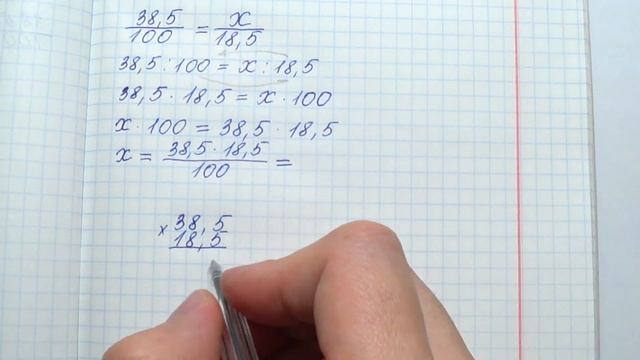 38,5/100 = x/18,5
38,5 : 100 = x : 18,5
38,5 · 18,5 = x · 100
x · 100 = 38,5 · 18,5
x = 38,5 · 18,5/100 =
× 38,5
18,5